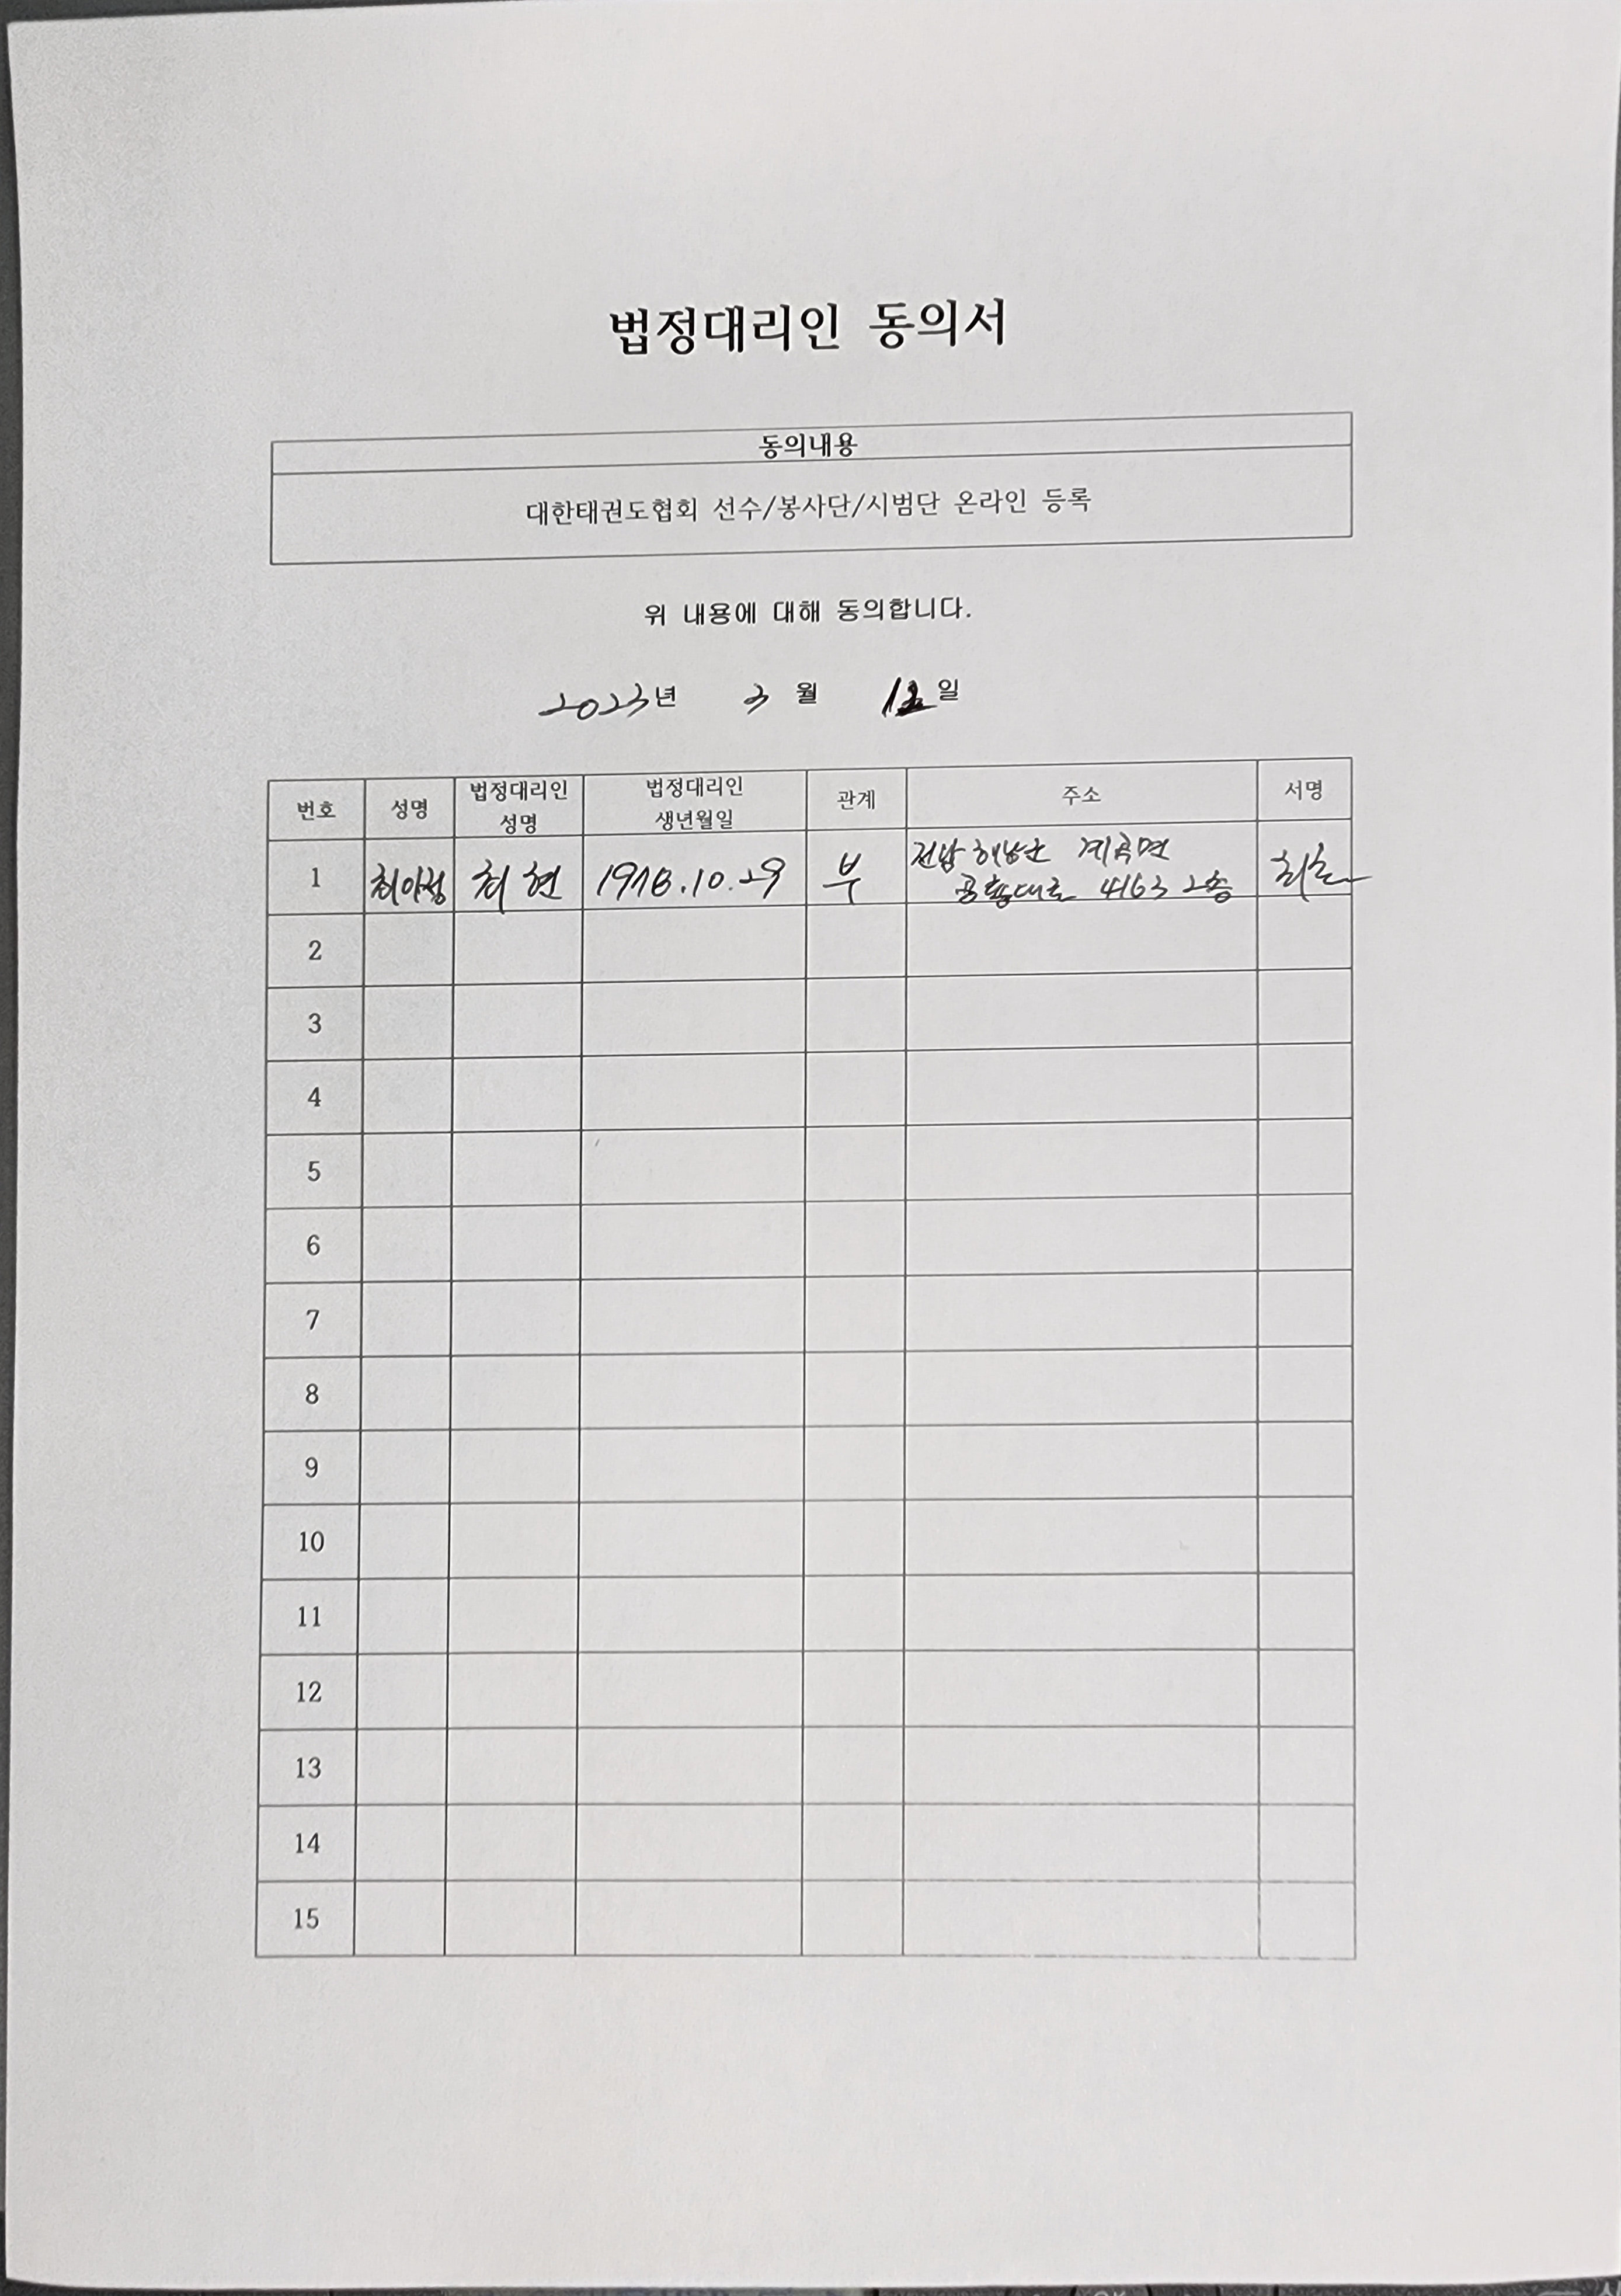 법정대리인 동의서
동의내용
대한태권도협회 선수/봉사단/시범단 온라인 등록
위 내용에 대해 동의합니다.
2023년 3월 12일
번호 성명 법정대리인 성명 법정대리인 생년월일 관계 주소 서명
1 최아정 최현 1978.10.29 부 전남 해남군 계곡면
공룡대로 4163 2층
2
3
4
5
6
7
8
9
10
11
12
13
14
15